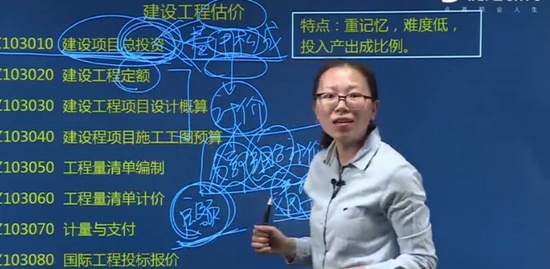 建设工程估价
特点：重记忆，难度低，
投入产出成比例。
Z103010 建设项目总投资
Z103020 建设工程定额
Z103030 建设工程项目设计概算
Z103040 建设程项目施工工图预算
Z103050 工程量清单编制
Z103060 工程量清单计价
Z103070 计量与支付
Z103080 国际工程投标报价
计价